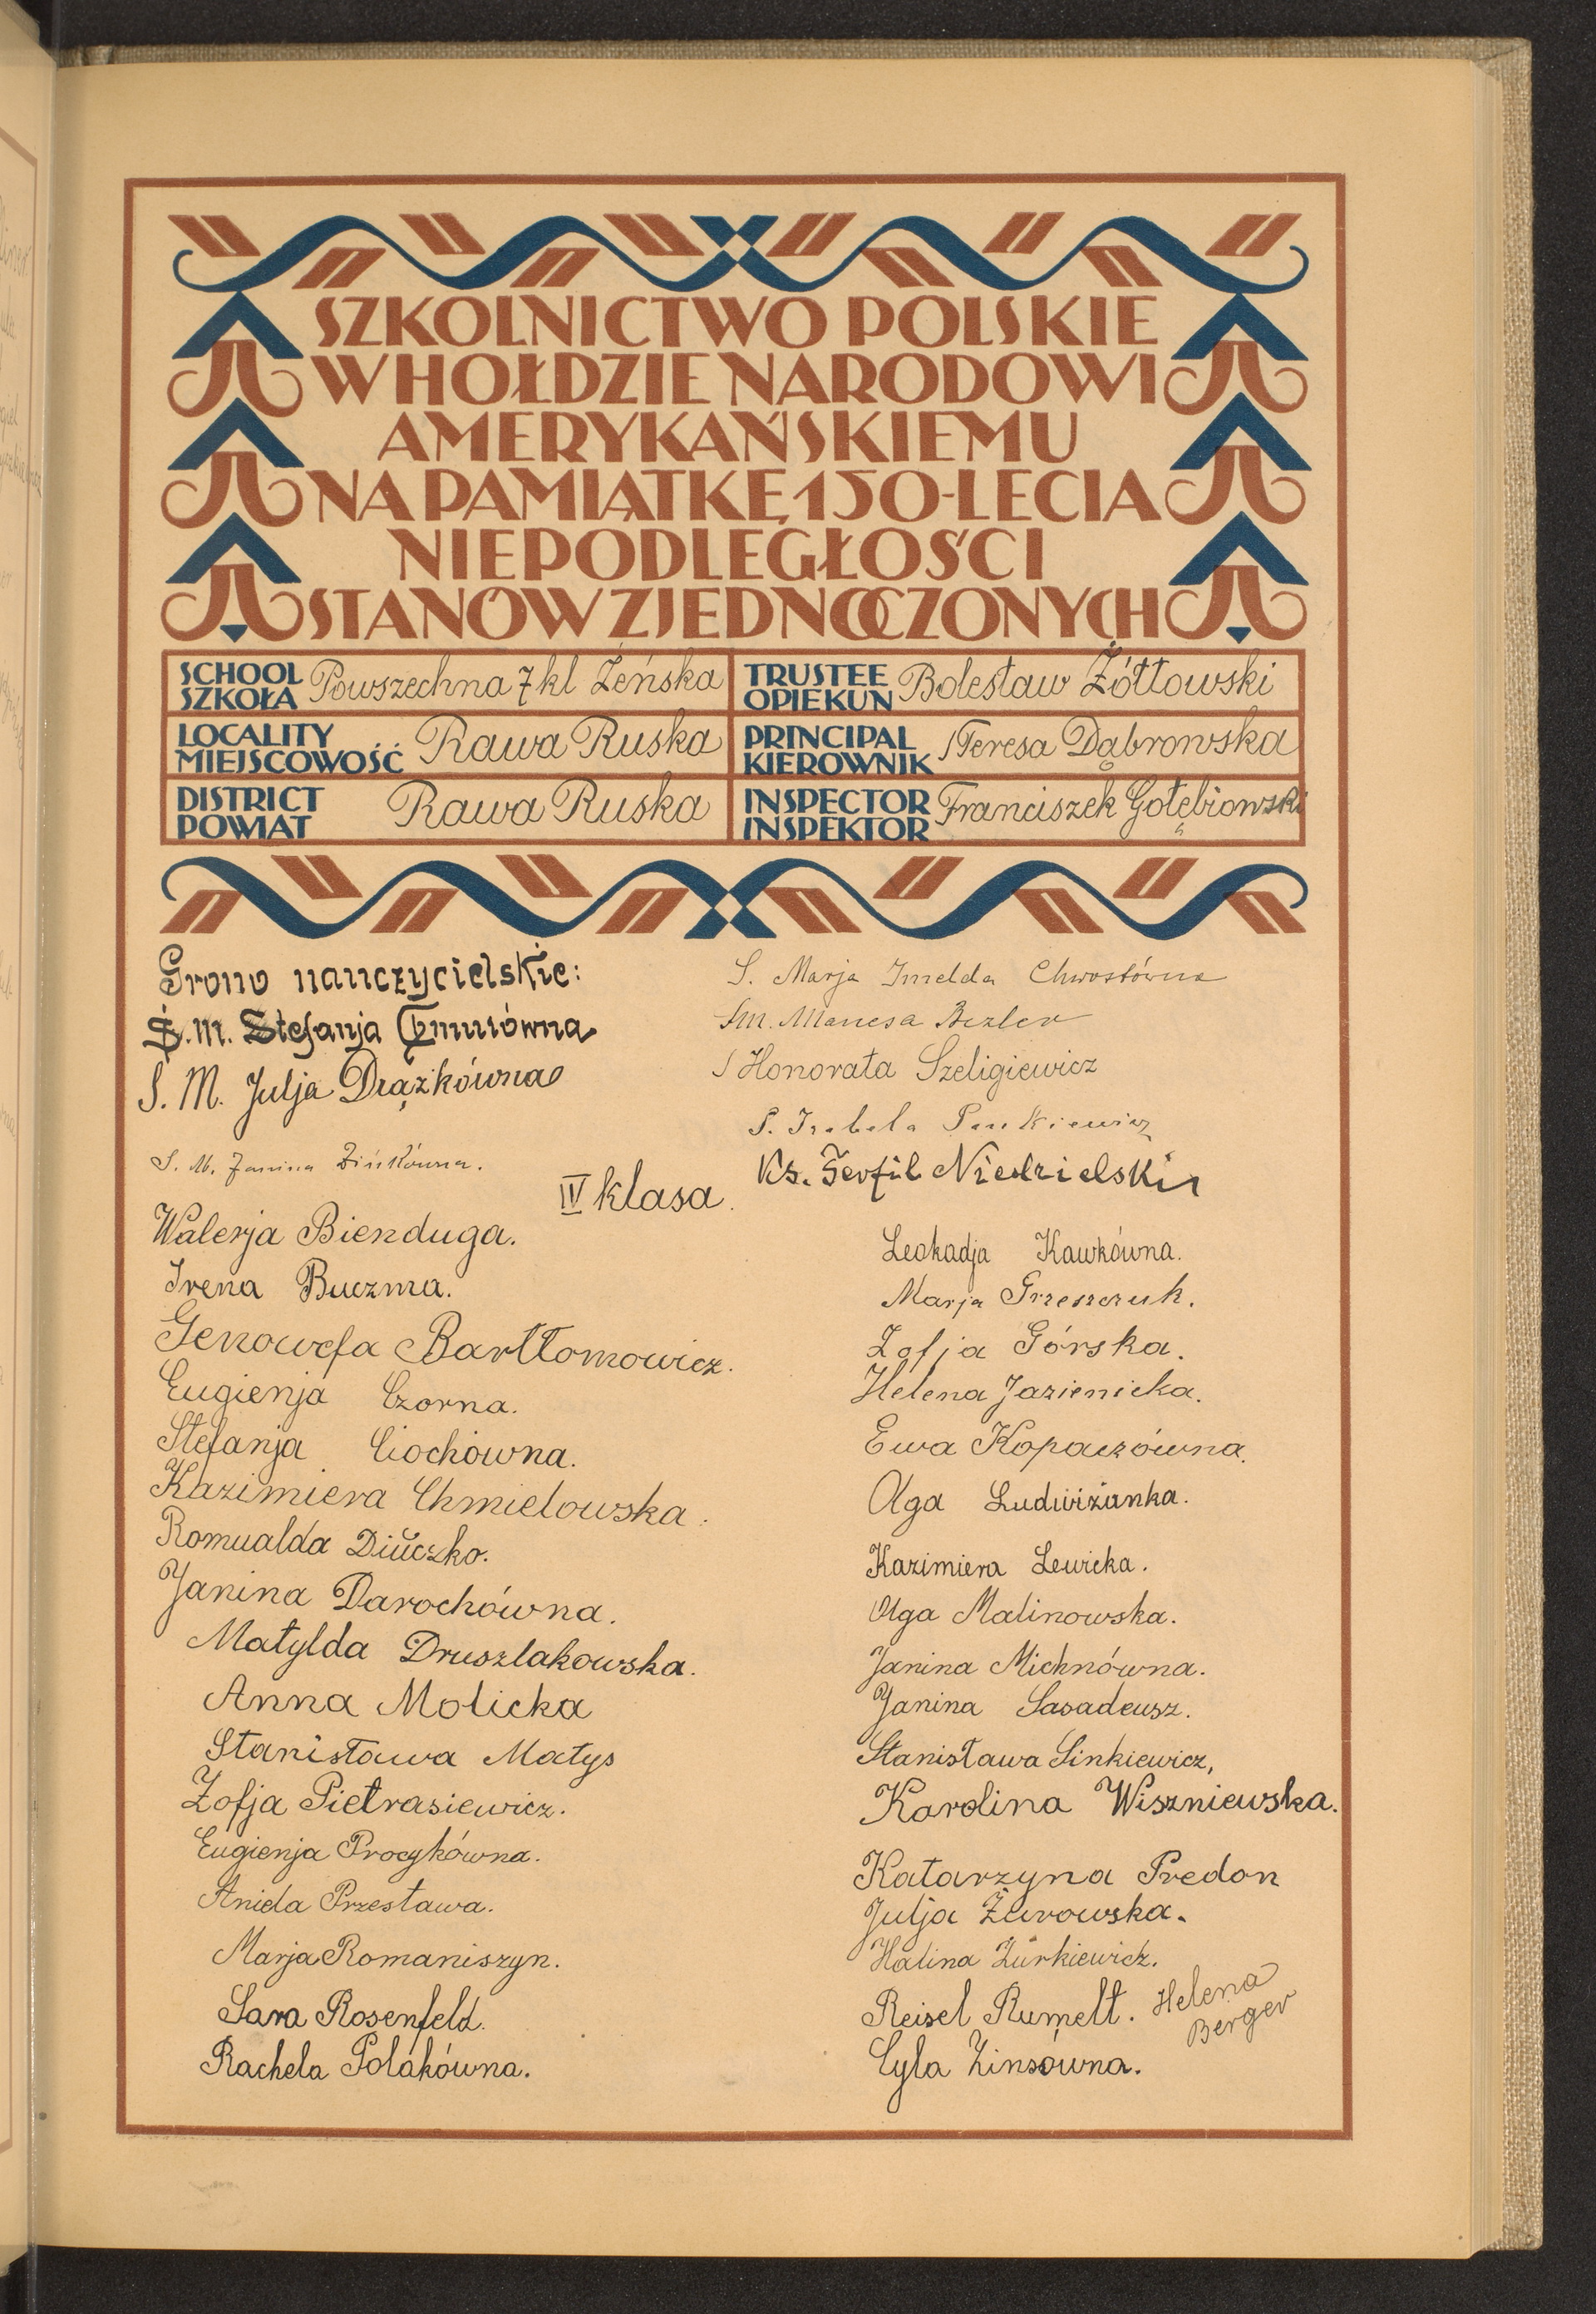 SZKOLNICTWO POLSKIE
W HOŁDZIE NARODOWI
AMERYKAŃSKIEMU
NA PAMIĄTKĘ 150-LECIA
NIEPODLEGŁOŚCI
STANÓW ZJEDNOCZONYCH
SCHOOL
SZKOŁA
Powszechna 7 kl Żeńska
TRUSTEE
OPIEKUN
Bolesław Żółtowski
LOCALITY
MIEJSCOWOŚĆ
Rawa Ruska
PRINCIPAL
KIEROWNIK
S Teresa Dąbrowska
DISTRICT
POWIAT
Rawa Ruska
INSPECTOR
INSPEKTOR
Franciszek Gołębiowski
Grono nauczycielskie:
S. M. Stefanja
S. M. Julja Drążkówna
S. M. Janina
S. Marja Imelda Chwostówna
S M. Manesa Bezler
S Honorata Szeligiewicz
S. Izabela
Ks. Teofil Niedzielski
IV klasa.
Walerja Bienduga.
Irena Buczma.
Genowefa Bartłomowicz.
Eugienja Czorna.
Stefanja Ciochówna.
Kazimiera Chmielowska.
Romualda Diuczko.
Janina Darochówna.
Matylda Druszlakowska.
Anna Molicka
Stanisława Matys
Zofja Pietrasiewicz.
Eugienja Procykówna.
Aniela Przestawa.
Marja Romaniszyn.
Sara Rosenfeld.
Rachela Polakówna.
Leokadja Kawkówna.
Marja Grzeszczuk.
Zofja Górska.
Helena Jazienicka.
Ewa Kopaczówna.
Olga Ludwiżanka.
Kazimiera Lewicka.
Olga Malinowska.
Janina Michnówna.
Janina Sasadeusz.
Stanisława Sinkiewicz,
Karolina Wiszniewska.
Katarzyna Predon
Julja Żurowska.
Halina Żurkiewicz.
Reisel Rumelt. Helena
Berger
Cyla Zinsówna.